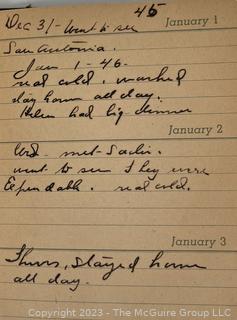 45
Dec 31 - Went to see
January 1
San Antonia.
Jan 1 - 46 -
real cold. worked
stay home all day.
Helen had big dinner
January 2
Wed - met Sadie.
went to see They were
Expendable. real cold.
January 3
Thurs, stayed home
all day.
Copyright 2023 - The McGuire Group LLC